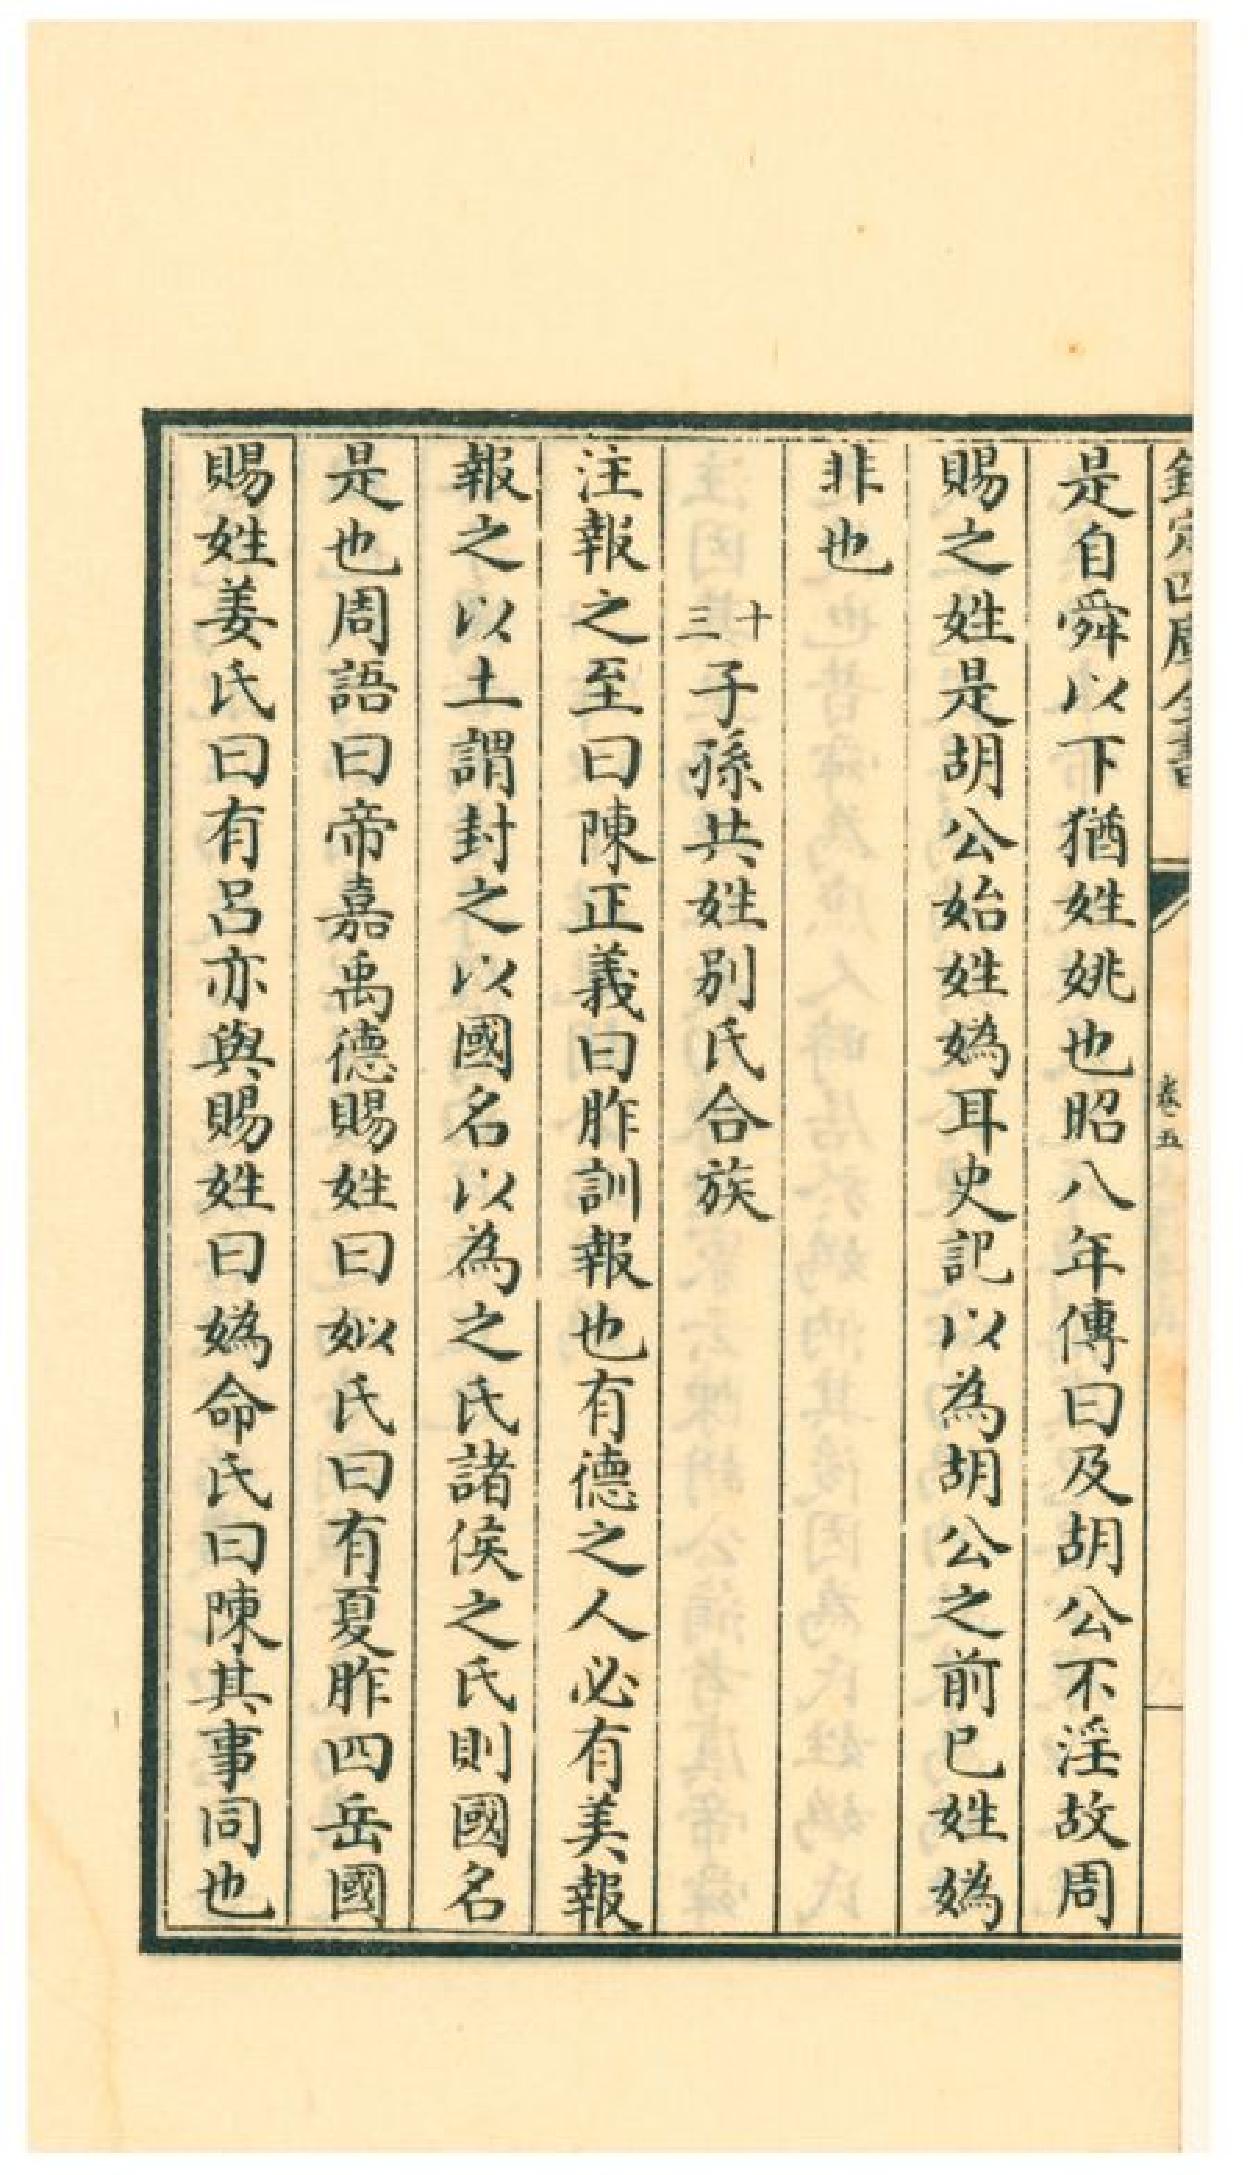 欽定四庫全書
卷五
是自舜以下猶姓姚也昭八年傳曰及胡公不淫故周
賜之姓是胡公始姓媯耳史記以為胡公之前已姓媯
非也
十三子孫共姓別氏合族
注報之至曰陳正義曰胙訓報也有德之人必有美報
報之以土謂封之以國名以為之氏諸侯之氏則國名
是也周語曰帝嘉禹德賜姓曰姒氏曰有夏胙四岳國
賜姓姜氏曰有呂亦與賜姓曰媯命氏曰陳其事同也